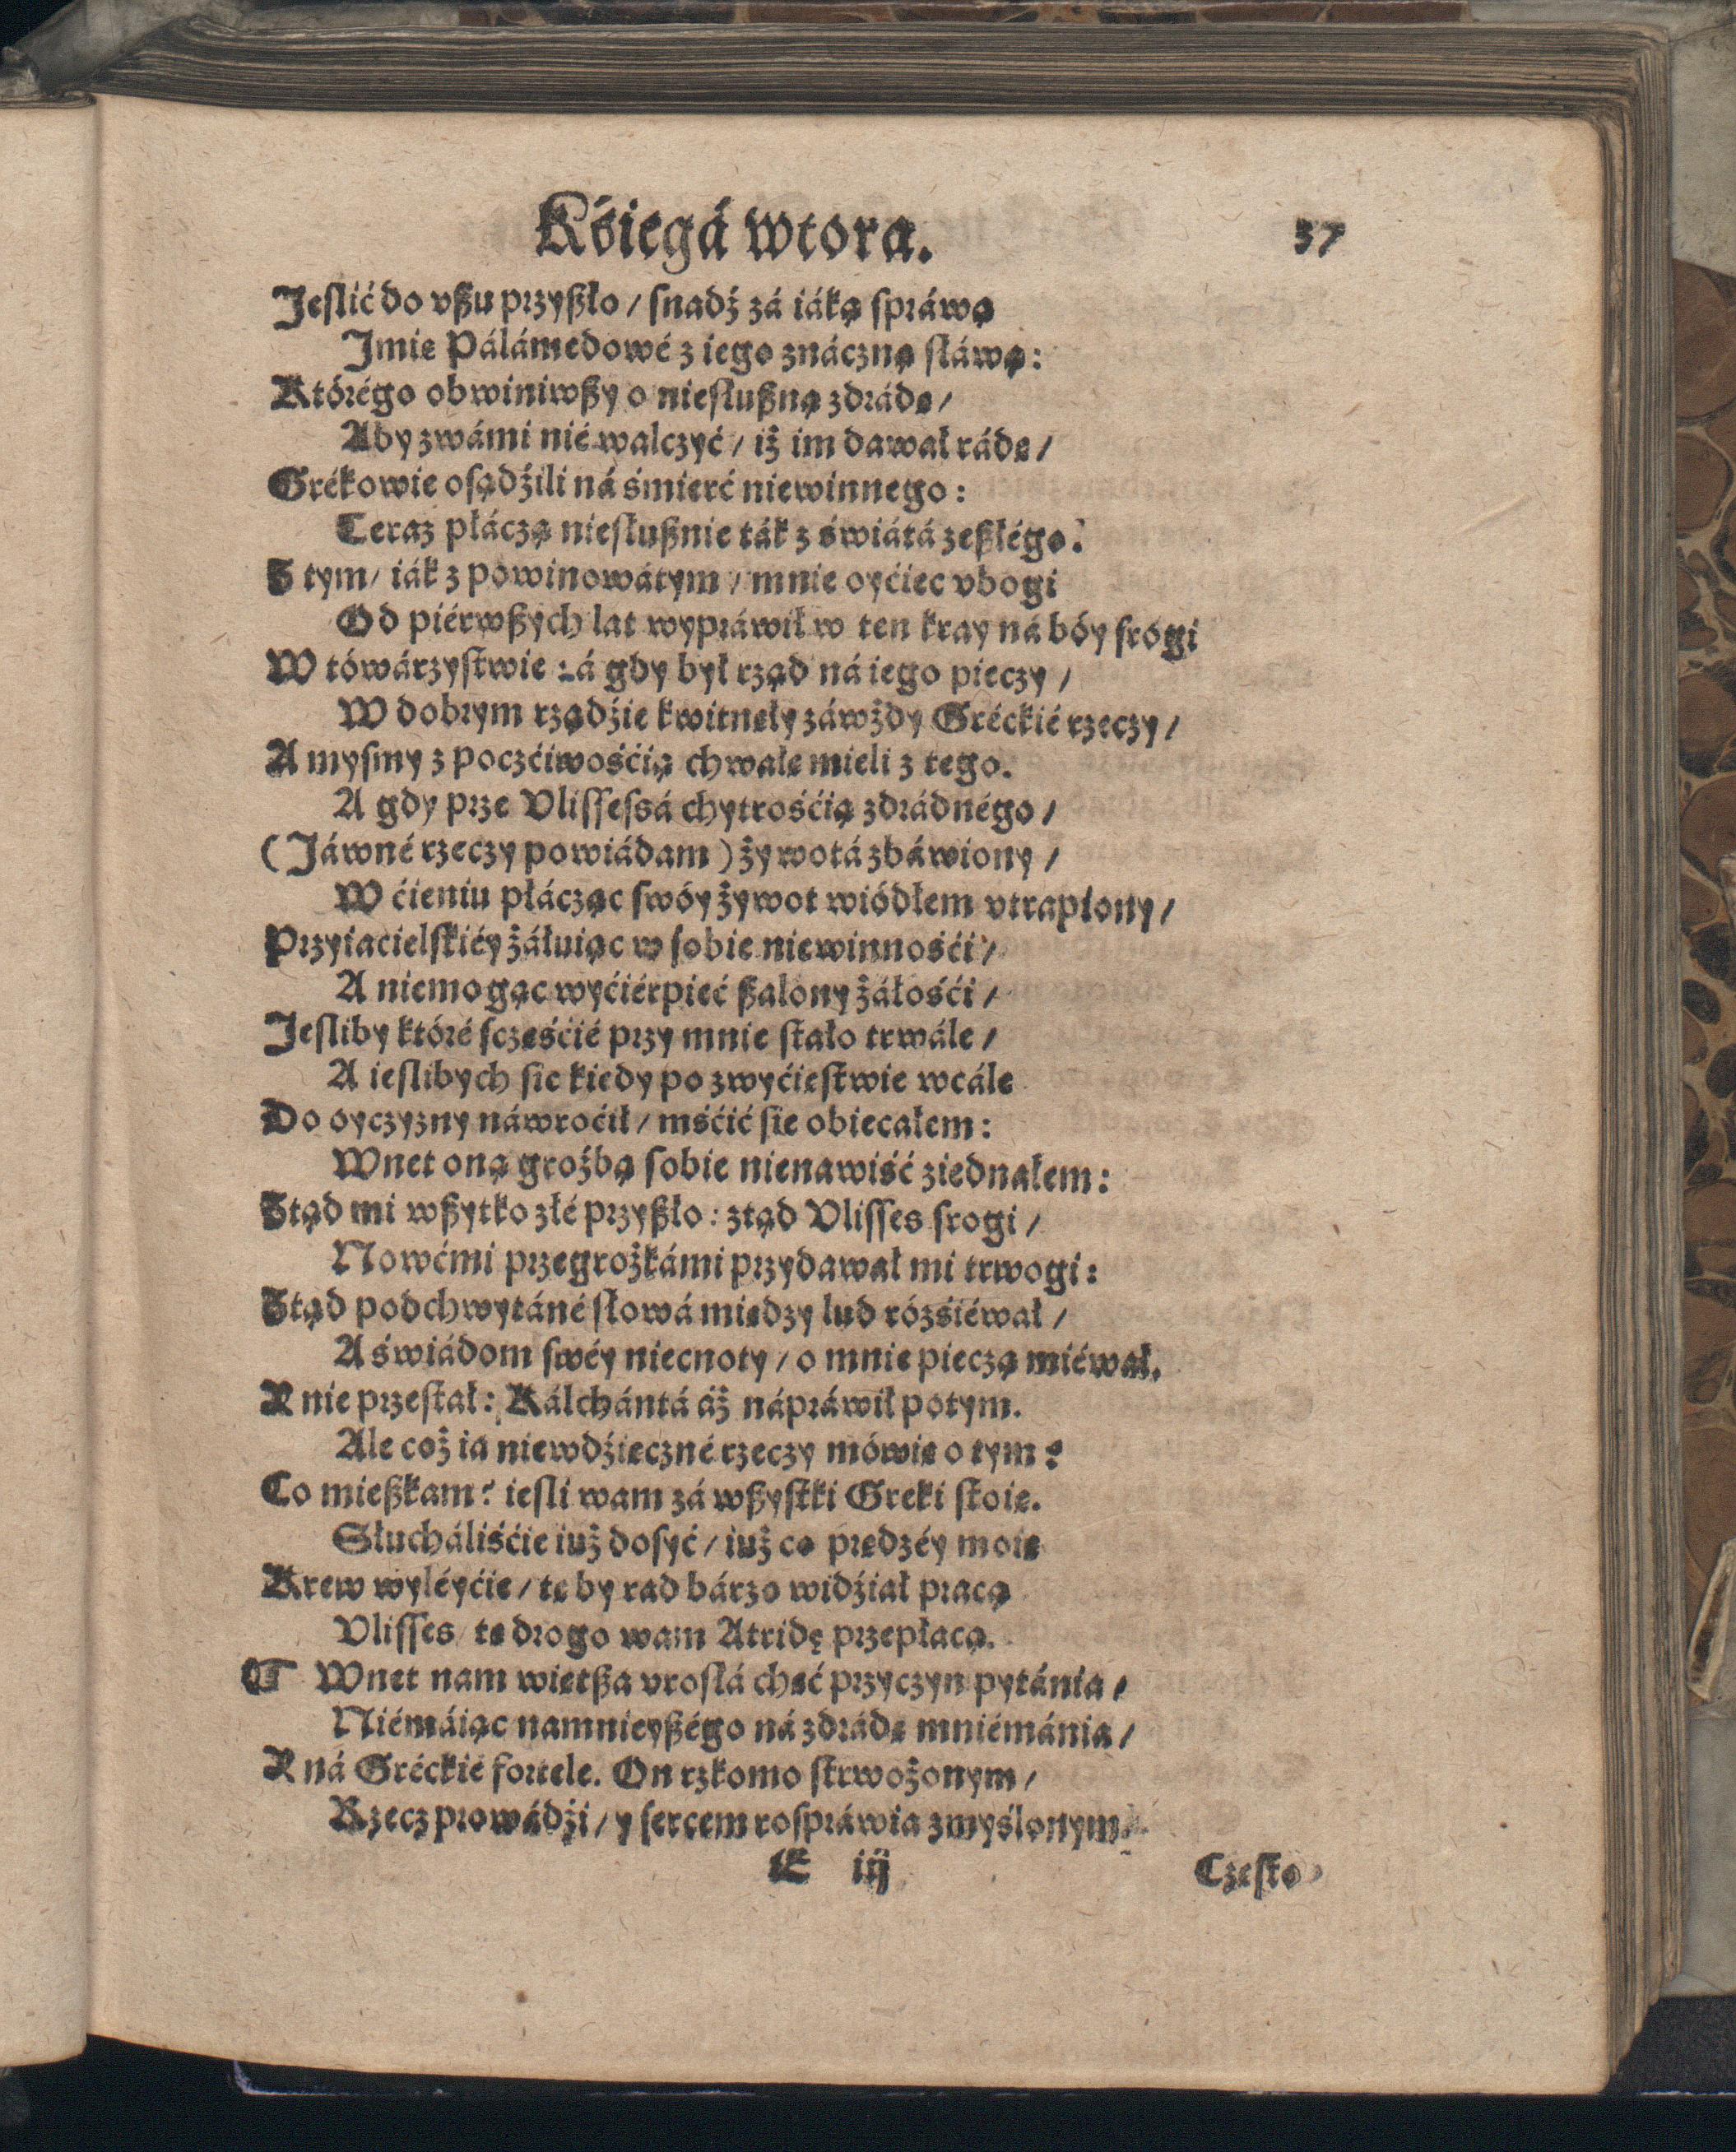 Kśięgá wtora. 37
Jeſlić do vßu przyßło / ſnadź zá iáką ſpráwą
Imię Pálámedowé z iego znáczną ſláwą:
Którégo obwiniwßy o nieſlußną zdrádę /
Aby z wámi nié walczyć / iż im dawał rádę /
Grékowie oſądźili ná śmierć niewinnego:
Teraz płáczą nieſłußnie ták z świátá zeßłégo.
Z tym / iák z powinowátym / mnie oyćiec vbogi
Od piérwßych lat wypráwił w ten kray ná bóy ſrogi
W tówárzyſtwie : á gdy był rząd ná iego pieczy /
W dobrym rządźie kwitnęły záwżdy Gréckié rzeczy /
A myſmy z poczćiwośćią chwałę mieli z tego.
A gdy prze Vliſſeſsá chytrośćią zdrádnégo /
(Jáwné rzeczy powiádam) żywotá zbáwiony /
W ćieniu płácząc ſwóy żywot wiódłem vtrapiony /
Przyiacielſkiéy żáłuiąc w ſobie niewinnośći /
A niemogąc wyćiérpieć ßalony żáłośći /
Jeſliby któré ſczęśćié przy mnie ſtało trwále /
A ieſlibych ſię kiedy po zwyćięſtwie wcále
Do oyczyzny náwroćił / mśćić ſię obiecałem:
Wnet oną groźbą ſobie nienawiść ziednałem:
Ztąd mi wßytko złé przyßło : ztąd Vliſſes ſrogi /
Nowémi przegrożkámi przydawał mi trwogi:
Ztąd podchwytáné ſłowá między lud rózśiéwał /
A świádom ſwéy niecnoty / o mnie pieczą miéwał.
Y nie przeſtał: Kálchántá áż nápráwił potym.
Ale coż ia niewdźięczné rzeczy mówię o tym?
Co mießkam? ieſli wam zá wßyſtki Greki ſtoię.
Słucháliśćie iuż doſyć / iuż co prędzéy moię
Krew wyléyćie / tę by rad bárzo widźiał pracą
Vliſſes / tę drogo wam Atridę przepłacą.
¶ Wnet nam więtßa vroſlá chęć przyczyn pytánia /
Niémáiąc namnieyßégo ná zdrádę mniémánia /
Y ná Gréckié fortele. On rzkomo ſtrwożonym /
Rzecz prowádźi / y ſercem roſpráwia zmyślonym.
E iij Często